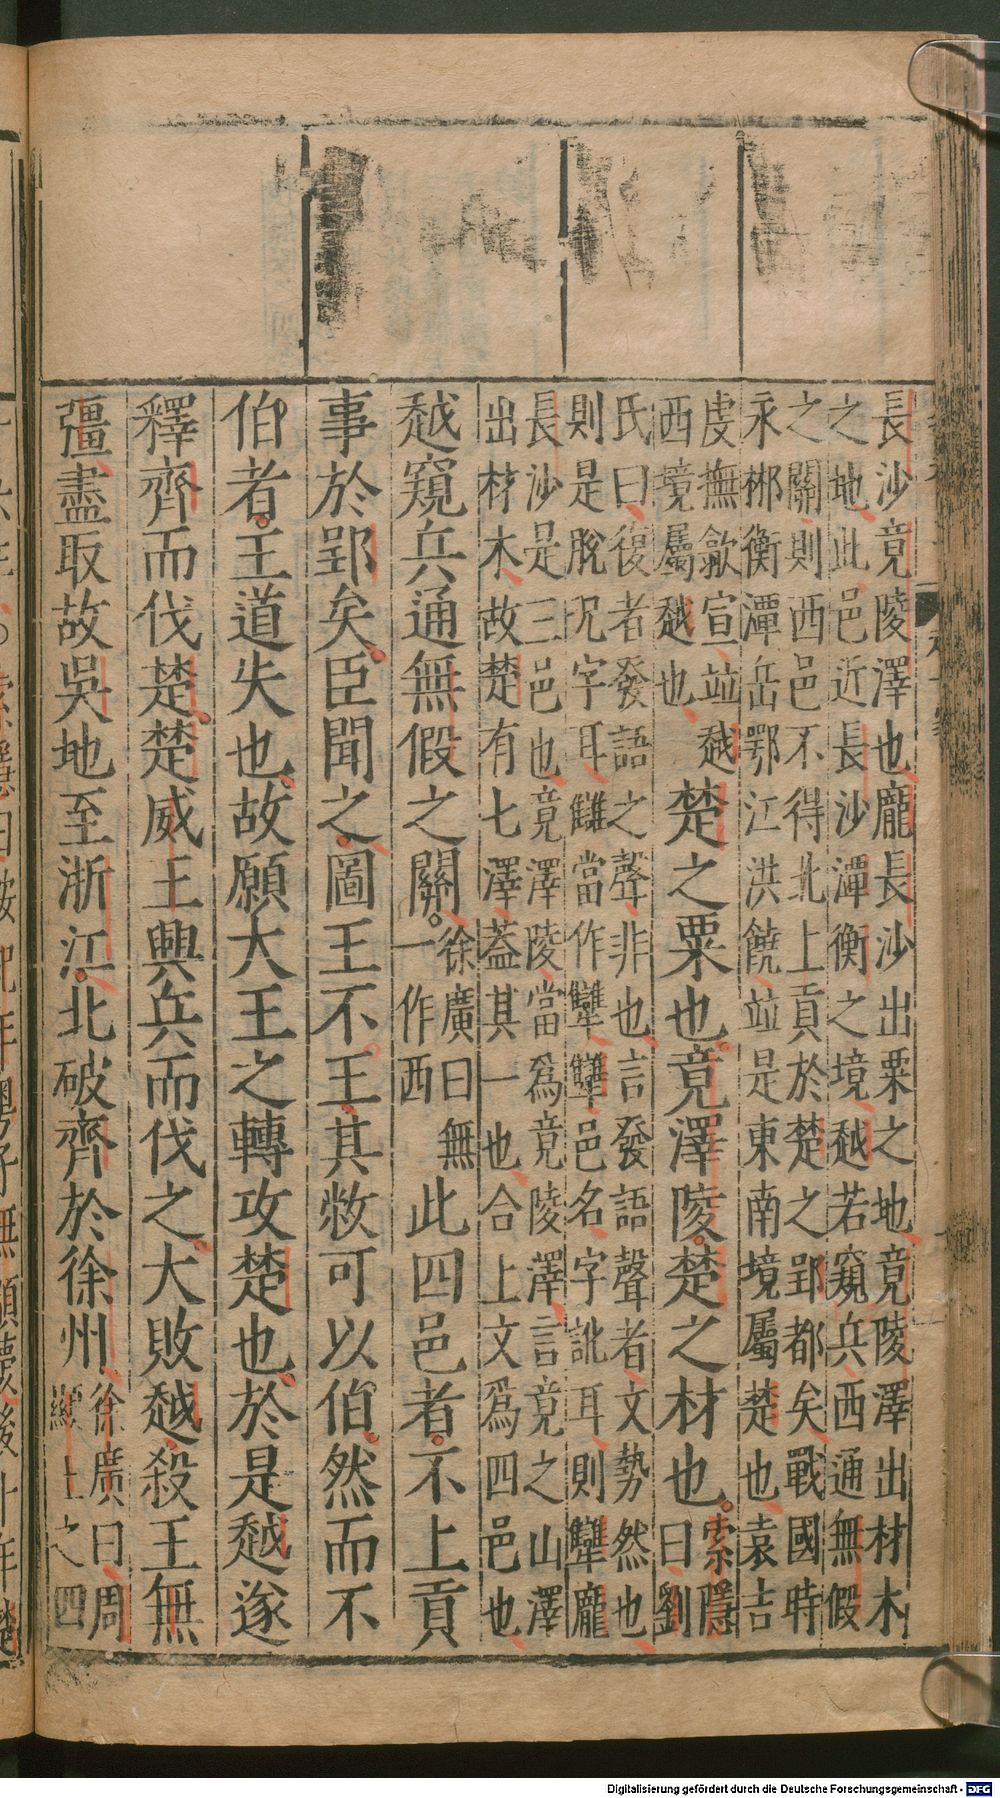 長沙竟陵澤也龐長沙出粟之地竟陵澤出材木
之地此邑近長沙潭衡之境越若窺兵西通無假
之關則西邑不得北上貢於楚之郢都矣戰國時
永郴衡潭岳鄂江洪饒並是東南境屬楚也袁吉
虔撫歙宣並越
西境屬越也
楚之粟也竟澤陵楚之材也
索隱
曰劉
氏曰復者發語之聲非也言發語聲者文勢然也
則是脫况字耳讎當作犨犨邑名字訛耳則犨龐
長沙是三邑也竟澤陵當爲竟陵澤言竟之山澤
出材木故楚有七澤蓋其一也合上文爲四邑也
越窺兵通無假之關
徐廣曰無
一作西
此四邑者不上貢
事於郢矣臣聞之圖王不王其敝可以伯然而不
伯者王道失也故願大王之轉攻楚也於是越遂
釋齊而伐楚楚威王興兵而伐之大敗越殺王無
彊盡取故吳地至浙江北破齊於徐州
徐廣曰周
顯王之四
Digitalisierung gefördert durch die Deutsche Forschungsgemeinschaft - DFG